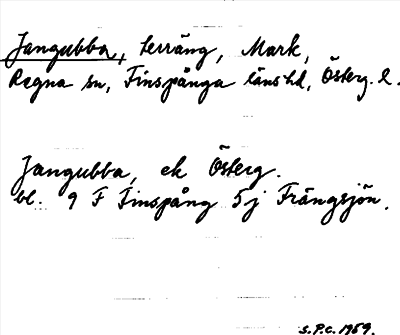 Jangubba, terräng, Mark,
Regna sn, Finspånga länshd, Österg. l.
Jangubba, ek Österg.
bl. 9 F Finspång 5j Frängsjön.
S.P.C. 1959.